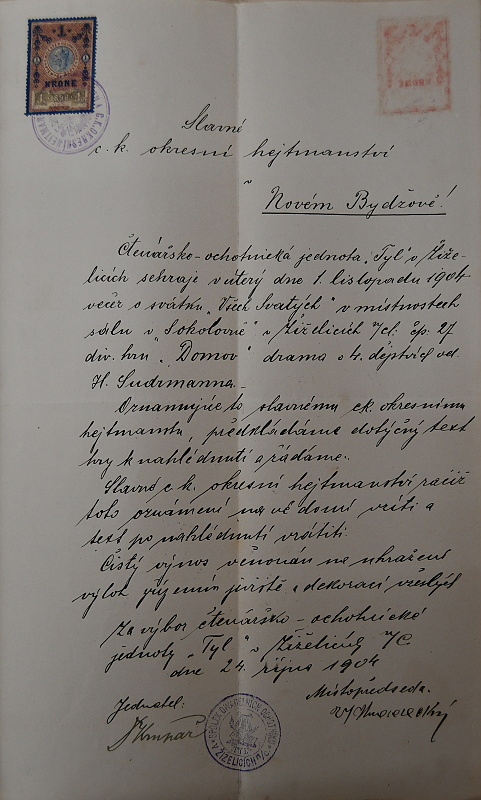 1
KRONE
Slavné
c. k. okresní hejtmanství
v
Novém Bydžově!
Čtenářsko-ochotnická jednota „Tyl" v Žiže-
licích sehraje v úterý dne 1. listopadu 1904
večer o svátku „Všech Svatých" v místnostech
sálu v „Sokolovně" v Žiželicích n/C. čp. 27
div. hru „Domov" drama o 4. dějstvích od
H. Sudrmanna.-
Oznamujíce to slavnému ck. okresnímu
hejtmanstv, předkládáme dotyčný text
hry k nahlédnutí a žádáme.-
Slavné c. k. okresní hejtmanství račiž
toto oznámení na vě domí vzíti a
text po nahlédnutí vrátiti.
Čistý výnos věnován na uhražení
výloh a dekorací
Za výbor čtenářsko-ochotnické
jednoty „Tyl" v Žiželicích n/C.
dne 24. října 1904
Jednatel:
Místopředseda.